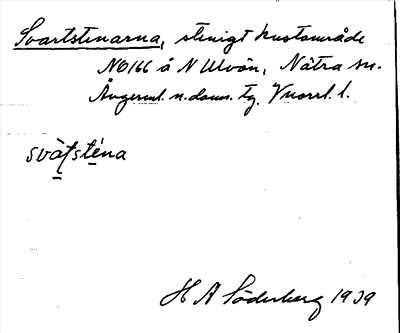 Svartstenarna, stenigt kustområde
NO166 å N Ulvön, Nätra sn.
Ångerml. n. doms. tg. Vnorrl. l.
svàʈste̱na
H A Söderberg 1939